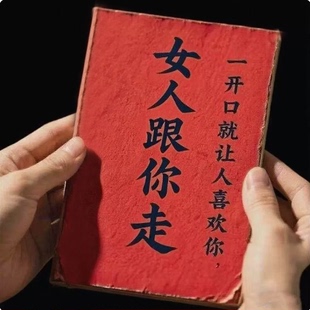 一开口就让人喜欢你，
女人跟你走